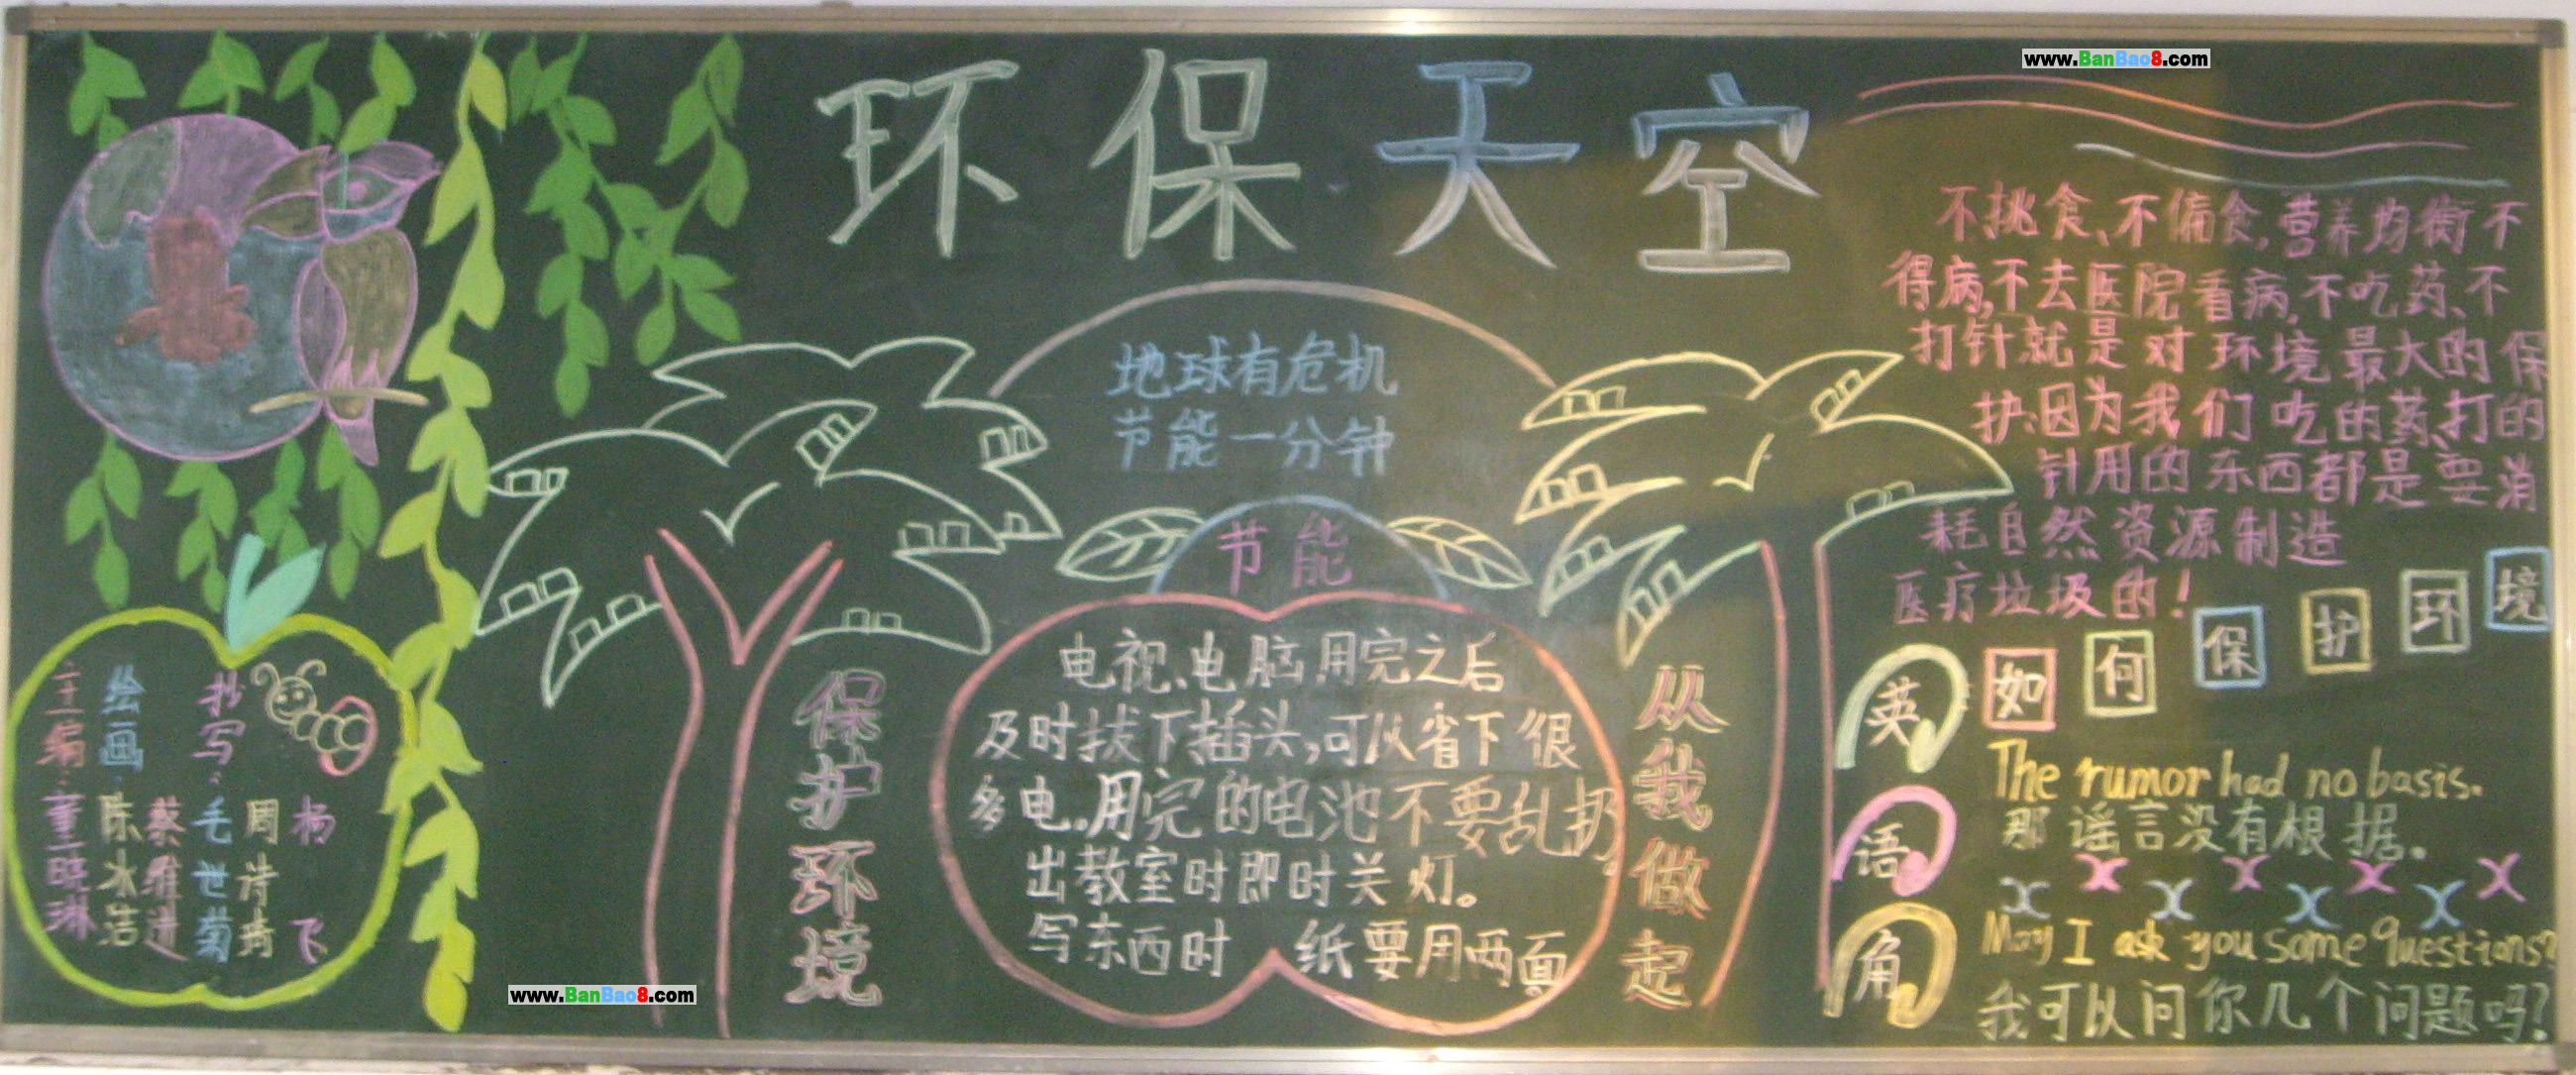 www.BanBao8.com
环保天空
地球有危机
节能一分钟
节能
电视、电脑用完之后
及时拔下插头,可以省下很
多电。用完的电池不要乱扔
出教室时即时关灯。
写东西时 纸要用两面
保护环境
从我做起
主编:董晓琳
绘画:陈冰洁
蔡维进
抄写:毛世菊
周诗琦
杨飞
不挑食、不偏食,营养均衡不
得病,不去医院看病,不吃药、不
打针就是对环境最大的保
护.因为我们吃的药、打的
针用的东西都是要消
耗自然资源制造
医疗垃圾的!
如何保护环境
英语角
The rumor had no basis.
那谣言没有根据.
May I ask you some questions?
我可以问你几个问题吗?
www.BanBao8.com